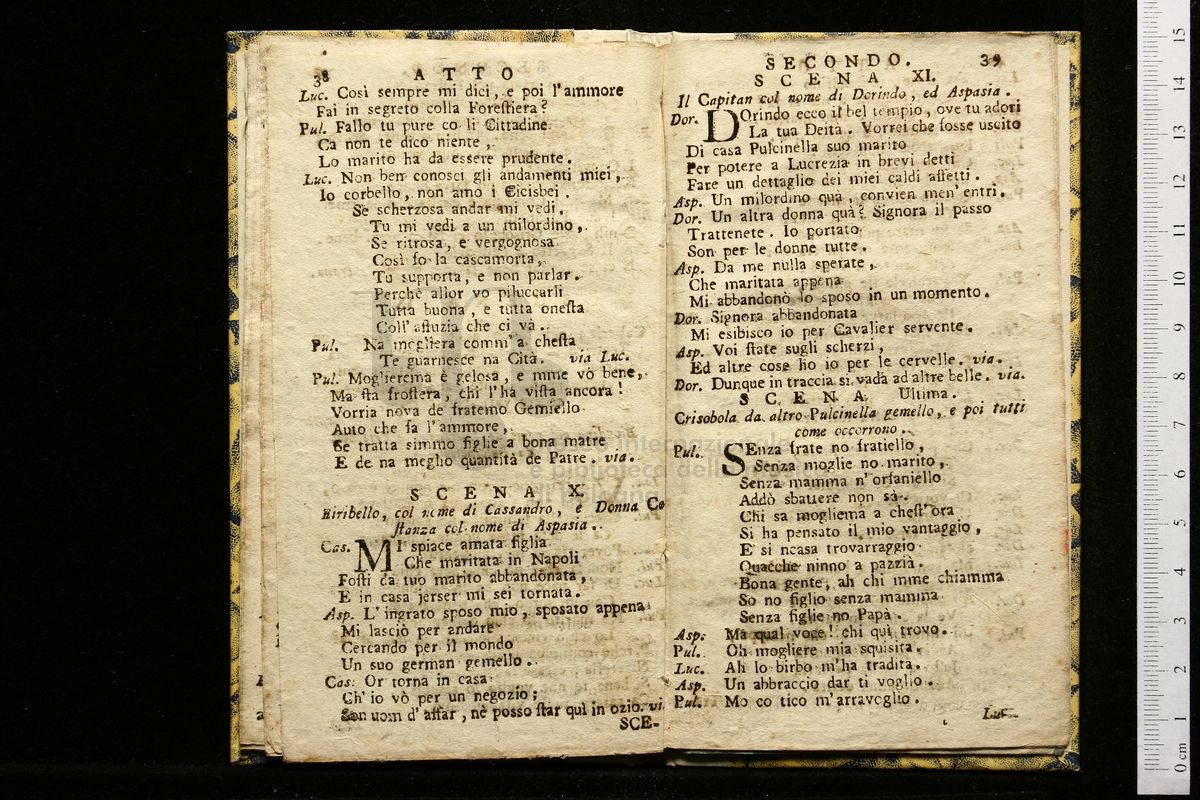 38 ATTO
Luc. Così sempre mi dici, e poi l'ammore
Fai in segreto colla Forestiera?
Pul. Fallo tu pure co li Cittadine
Ca non te dico niente,
Lo marito ha da essere prudente.
Luc. Non ben conosci gli andamenti miei,
Io corbello, non amo i Cicisbei.
Se scherzosa andar mi vedi,
Tu mi vedi a un milordino,
Se ritrosa, e vergognosa
Così fo la cascamorta,
Tu supporta, e non parlar.
Perchè allor vo piluccarli
Tutta buona, e tutta onesta
Coll' astuzia che ci và.
Pul. Na mogliera comm' a chesta
Te guarnesce na Cità. via Luc.
Pul. Moglierema è gelosa, e mme vò bene,
Ma sta frostera, chi l'ha vista ancora!
Vorria nova de fratemo Gemiello
Auto che fa l'ammore,
Se tratta simmo figlie a bona matre
E de na meglio quantità de Patre. via.
SCENA X.
Biribello, col nome di Cassandro, e Donna Co
stanza col nome di Aspasia.
Cas. MI spiace amata figlia
Che maritata in Napoli
Fosti da tuo marito abbandonata,
E in casa jerser mi sei tornata.
Asp. L'ingrato sposo mio, sposato appena
Mi lasciò per andare
Cercando per il mondo
Un suo german gemello.
Cas. Or torna in casa
Ch'io vò per un negozio;
Son uom d'affar, nè posso star quì in ozio. vi
SCE-
SECONDO. 39
SCENA XI.
Il Capitan col nome di Dorindo, ed Aspasia.
Dor. DOrindo ecco il bel tempio, ove tu adori
La tua Deità. Vorrei che fosse uscito
Di casa Pulcinella suo marito
Per potere a Lucrezia in brevi detti
Fare un dettaglio dei miei caldi affetti.
Asp. Un milordino quà, convien men' entri.
Dor. Un altra donna quà? Signora il passo
Trattenete. Io portato
Son per le donne tutte.
Asp. Da me nulla sperate,
Che maritata appena
Mi abbandonò lo sposo in un momento.
Dor. Signora abbandonata
Mi esibisco io per Cavalier servente.
Asp. Voi state sugli scherzi,
Ed altre cose ho io per le cervelle. via.
Dor. Dunque in traccia si vada ad altre belle. via.
SCENA Ultima.
Crisobola da altro Pulcinella gemello, e poi tutti
come occorrono.
Pul. SEnza frate no fratiello,
Senza moglie no marito,
Senza mamma n'orfaniello
Addò sbattere non sà.
Chi sa mogliema a chest'ora
Si ha pensato il mio vantaggio,
E si ncasa trovarraggio
Quacche ninno a pazzià.
Bona gente, ah chi mme chiamma
So no figlio senza mamma
Senza figlie no Papà.
Asp. Ma qual voce! chi quì trovo.
Pul. Oh mogliere mia squisita.
Luc. Ah lo birbo m'ha tradita.
Asp. Un abbraccio dar ti voglio.
Pul. Mo co tico m'arraveglio.
Luc.
0 cm 1 2 3 4 5 6 7 8 9 10 11 12 13 14 15